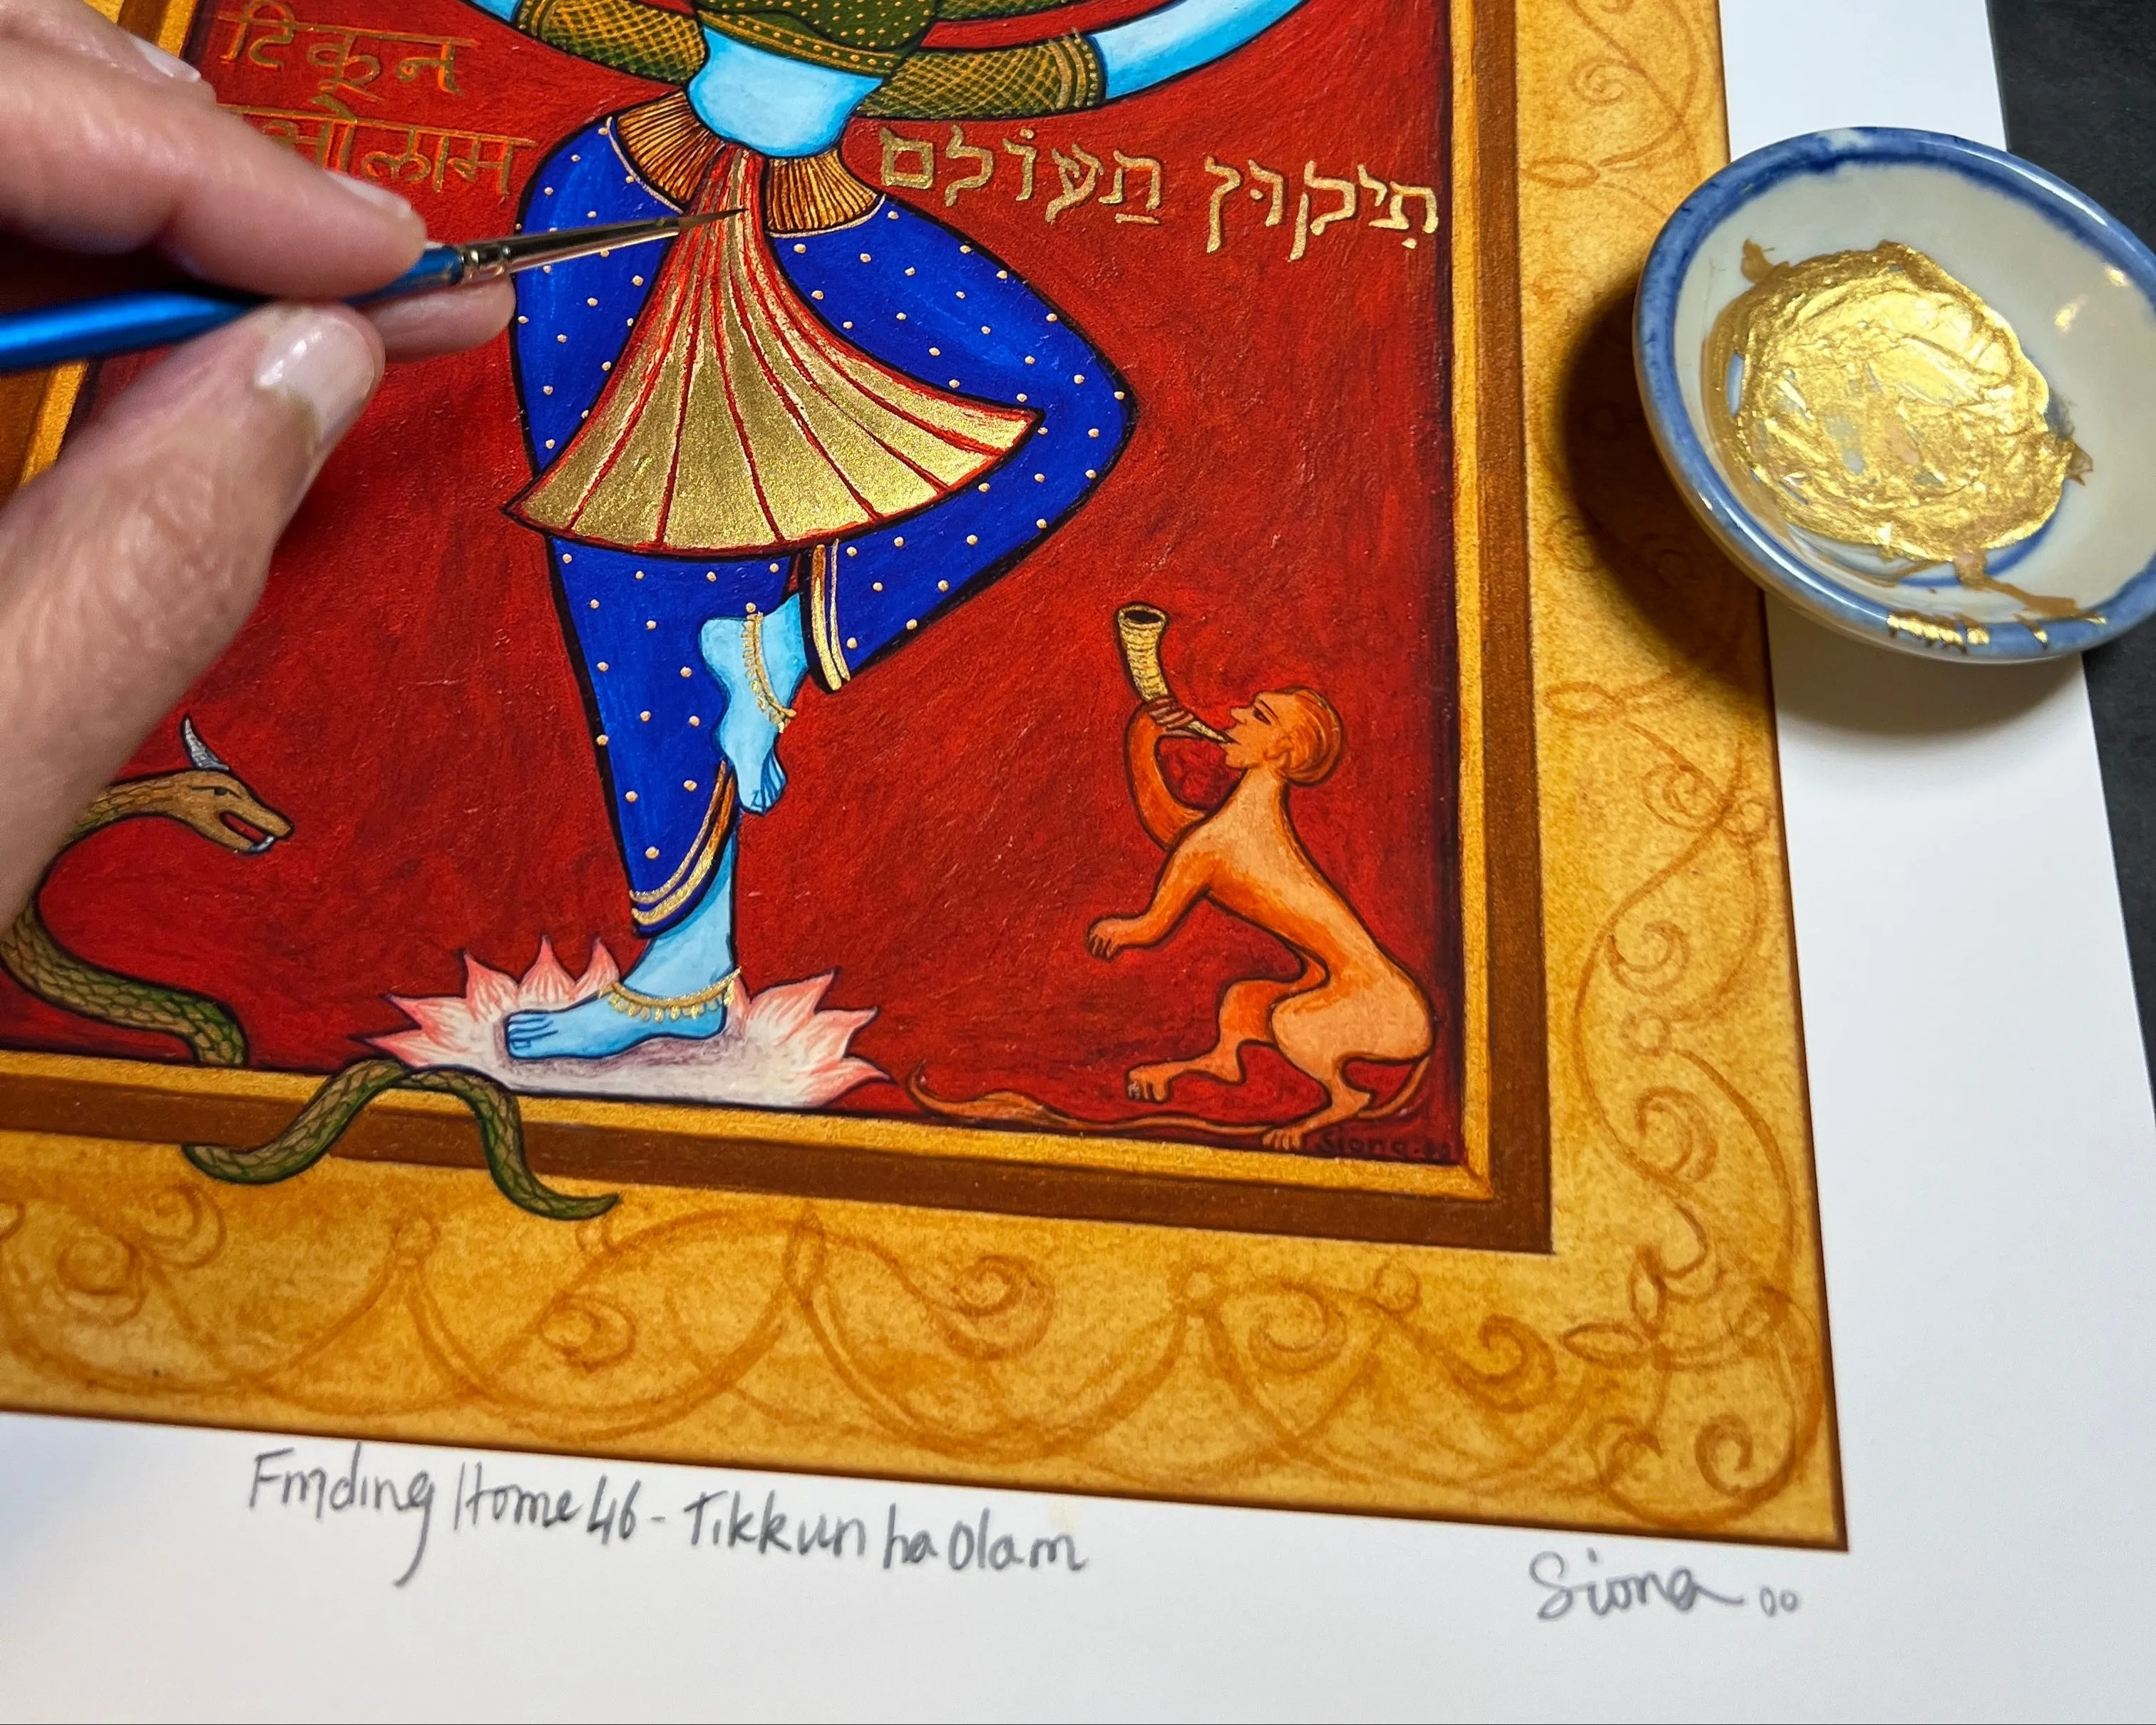 टिकून
ओलाम
תִיקוּן הַעוֹלם
Finding Home 46 - Tikkun ha Olam
Siona 00